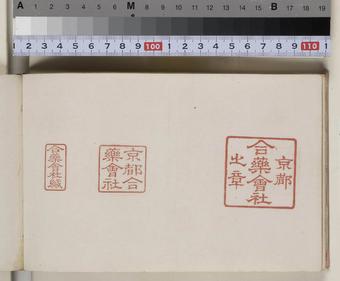 A 1 2 3 4 5 6 M 8 9 10 11 12 13 14 15 B 17 18 19
1 2 3 4 5 6 7 8 9 100 1 2 3 4 5 6 7 8 9 110 1
京都
合藥會社
之章
京都合
藥會社
合藥會社緘